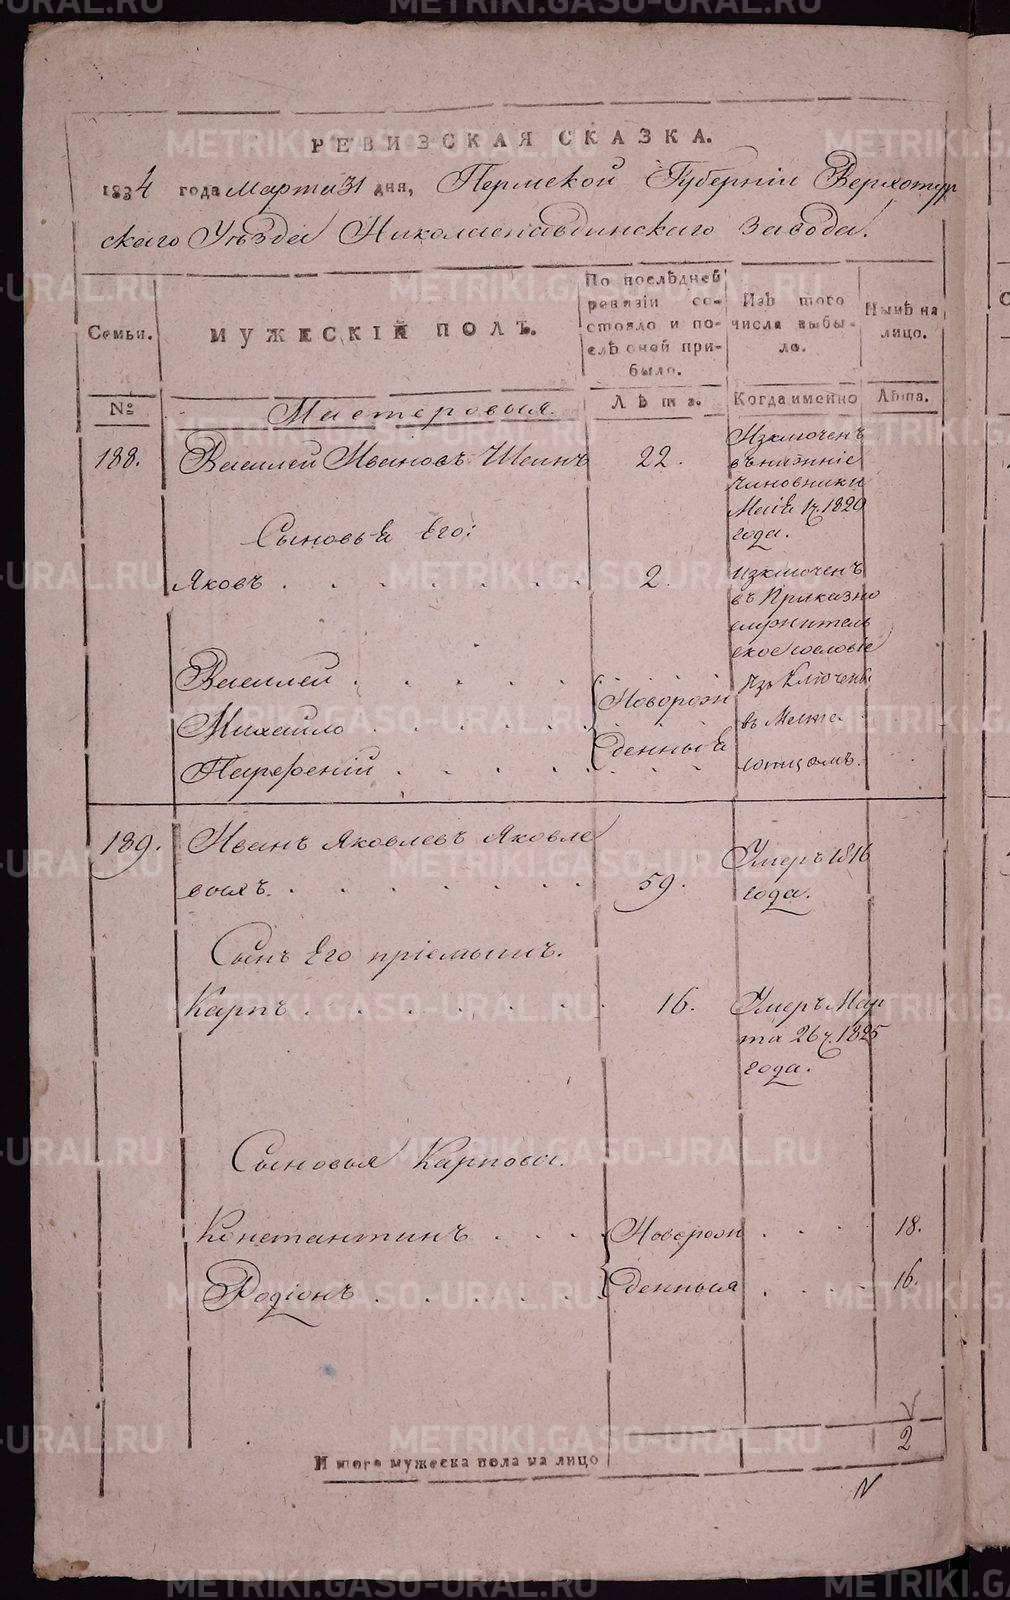 METRIKI.GASO-URAL.RU
РЕВИЗСКАЯ СКАЗКА.
1834 года Марта 31 дня, Пермской Губерніи Верхотур
скаго Уѣзда Николаепавдинскаго завода.
Семьи.
МУЖЕСКІЙ ПОЛЪ.
По послѣдней
ревизіи со-
стояло и по-
слѣ оной при-
было.
Изъ того
числа выбы-
ло.
Нынѣ на
лицо.
№
Лѣта.
Когда именно
Лѣта.
Мастеровыя.
188.
Василей Ивановъ Шеинъ
22.
Изключенъ
въ нижніе
чиновники
Маія 17. 1820
года.
Сыновья Его:
Яковъ
2.
Изключенъ
въ Приказно
служитель
ское сословіе
Василей
Михайло
Парфеній
Новорож
денныя
Изключены
въ Месте
сотцомъ.
189.
Иванъ Яковлевъ Яковле
выхъ
59.
Умеръ 1816
года.
Сынъ Его пріемышъ.
Карпъ
16.
Умеръ Мар
та 26 ч. 1825
года.
Сыновья Карповы.
Константинъ
Новорож
18.
Родіонъ
денныя
16.
Итого мужеска пола на лицо
2